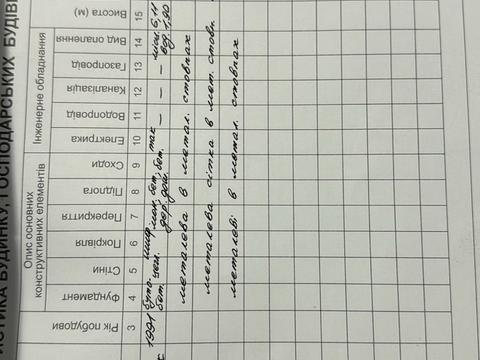 ИСТИКА БУДИНКУ, ГОСПОДАРСЬКИХ БУДІВ
Опис основних
конструктивних елементів
Інженерне обладнання
Рік побудови
Фундамент
Стіни
Покрівля
Перекриття
Підлога
Сходи
Електрика
Водопровід
Каналізація
Газопровід
Вид опалення
Висота (м)
3 4 5 6 7 8 9 10 11 12 13 14 15
1991 буто- шиф мон. бет. бет. так — — —
бет. цегл. дер. дош.
вод. 1,90
металева в метал. стовпах
металева сітка в мет. стовп.
металеві в метал. стовпах